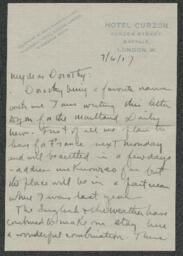 HOTEL CURZON
CURZON STREET
MAYFAIR
LONDON, W.
7/6/17
My dear Dorothy:
Dorothy being a favorite name
with me I am writing this letter
to you for the Maitland Daily
news. First of all we plan to
leave for France next Monday
and will be settled in a few days
- address unknown so far but
the place will be in a
when I was last year.
The English & the weather have
combined to make our stay here
a wonderful combination. There